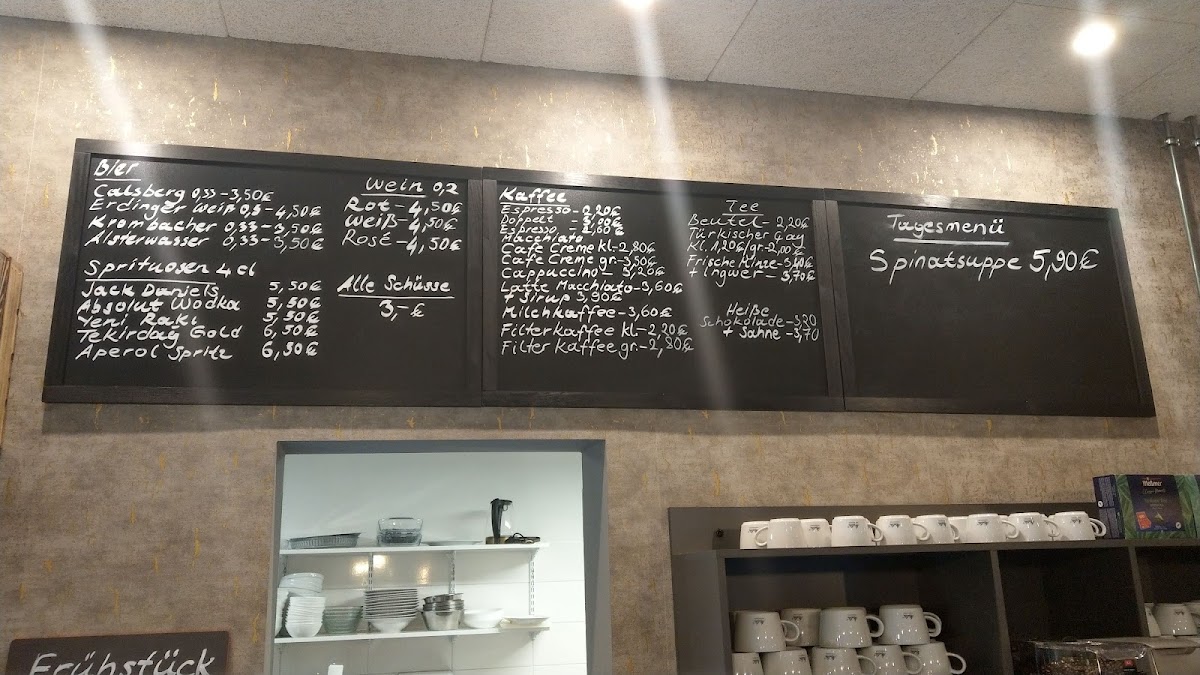 Bier
Calsberg 0,33-3,50€
Erdinger Weiß 0,5-4,50€
Krombacher 0,33-3,50€
Alsterwasser 0,33-3,50€
Sprituosen 4cl
Jack Daniels 5,50€
Absolut Wodka 5,50€
Yeni Raki 5,50€
Tekirdağ Gold 6,50€
Aperol Spritz 6,50€
Wein 0,2
Rot-4,50€
Weiß-4,50€
Rosé-4,50€
Alle Schüsse
3,-€
Kaffee
Espresso-2,20€
Doppelt
Espresso
Macchiato
Cafe Creme kl-2,80€
Cafe Creme gr-3,50€
Cappuccino-3,20€
Latte Macchiato-3,60€
+ Sirup 3,90€
Milchkaffee-3,60€
Filterkaffee kl.-2,20€
Filterkaffee gr.-2,80€
Tee
Beutel-2,20€
Türkischer Cay
Kl. 1,20€/gr-2,00€
Frische Minze
+ Ingwer-3,70€
Heiße
Schokolade-3,20
+ Sahne-3,70
Tagesmenü
Spinatsuppe 5,90€
Meßmer
Frühstück